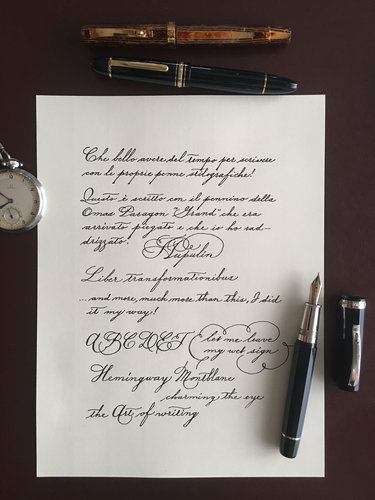 Che bello avere del tempo per scrivere
con le proprie penne stilografiche!
Questo è scritto con il pennino della
Omas Paragon "Grand" che era
arrivato piegato e che io ho rad-
drizzato.
De
Aupulin
Liber transformationibus
...and more, much more than this, I did
it my way!
ABCDEF
let me leave
my wet sign
Hemingway Montblanc
charming the eye
the Art of writing